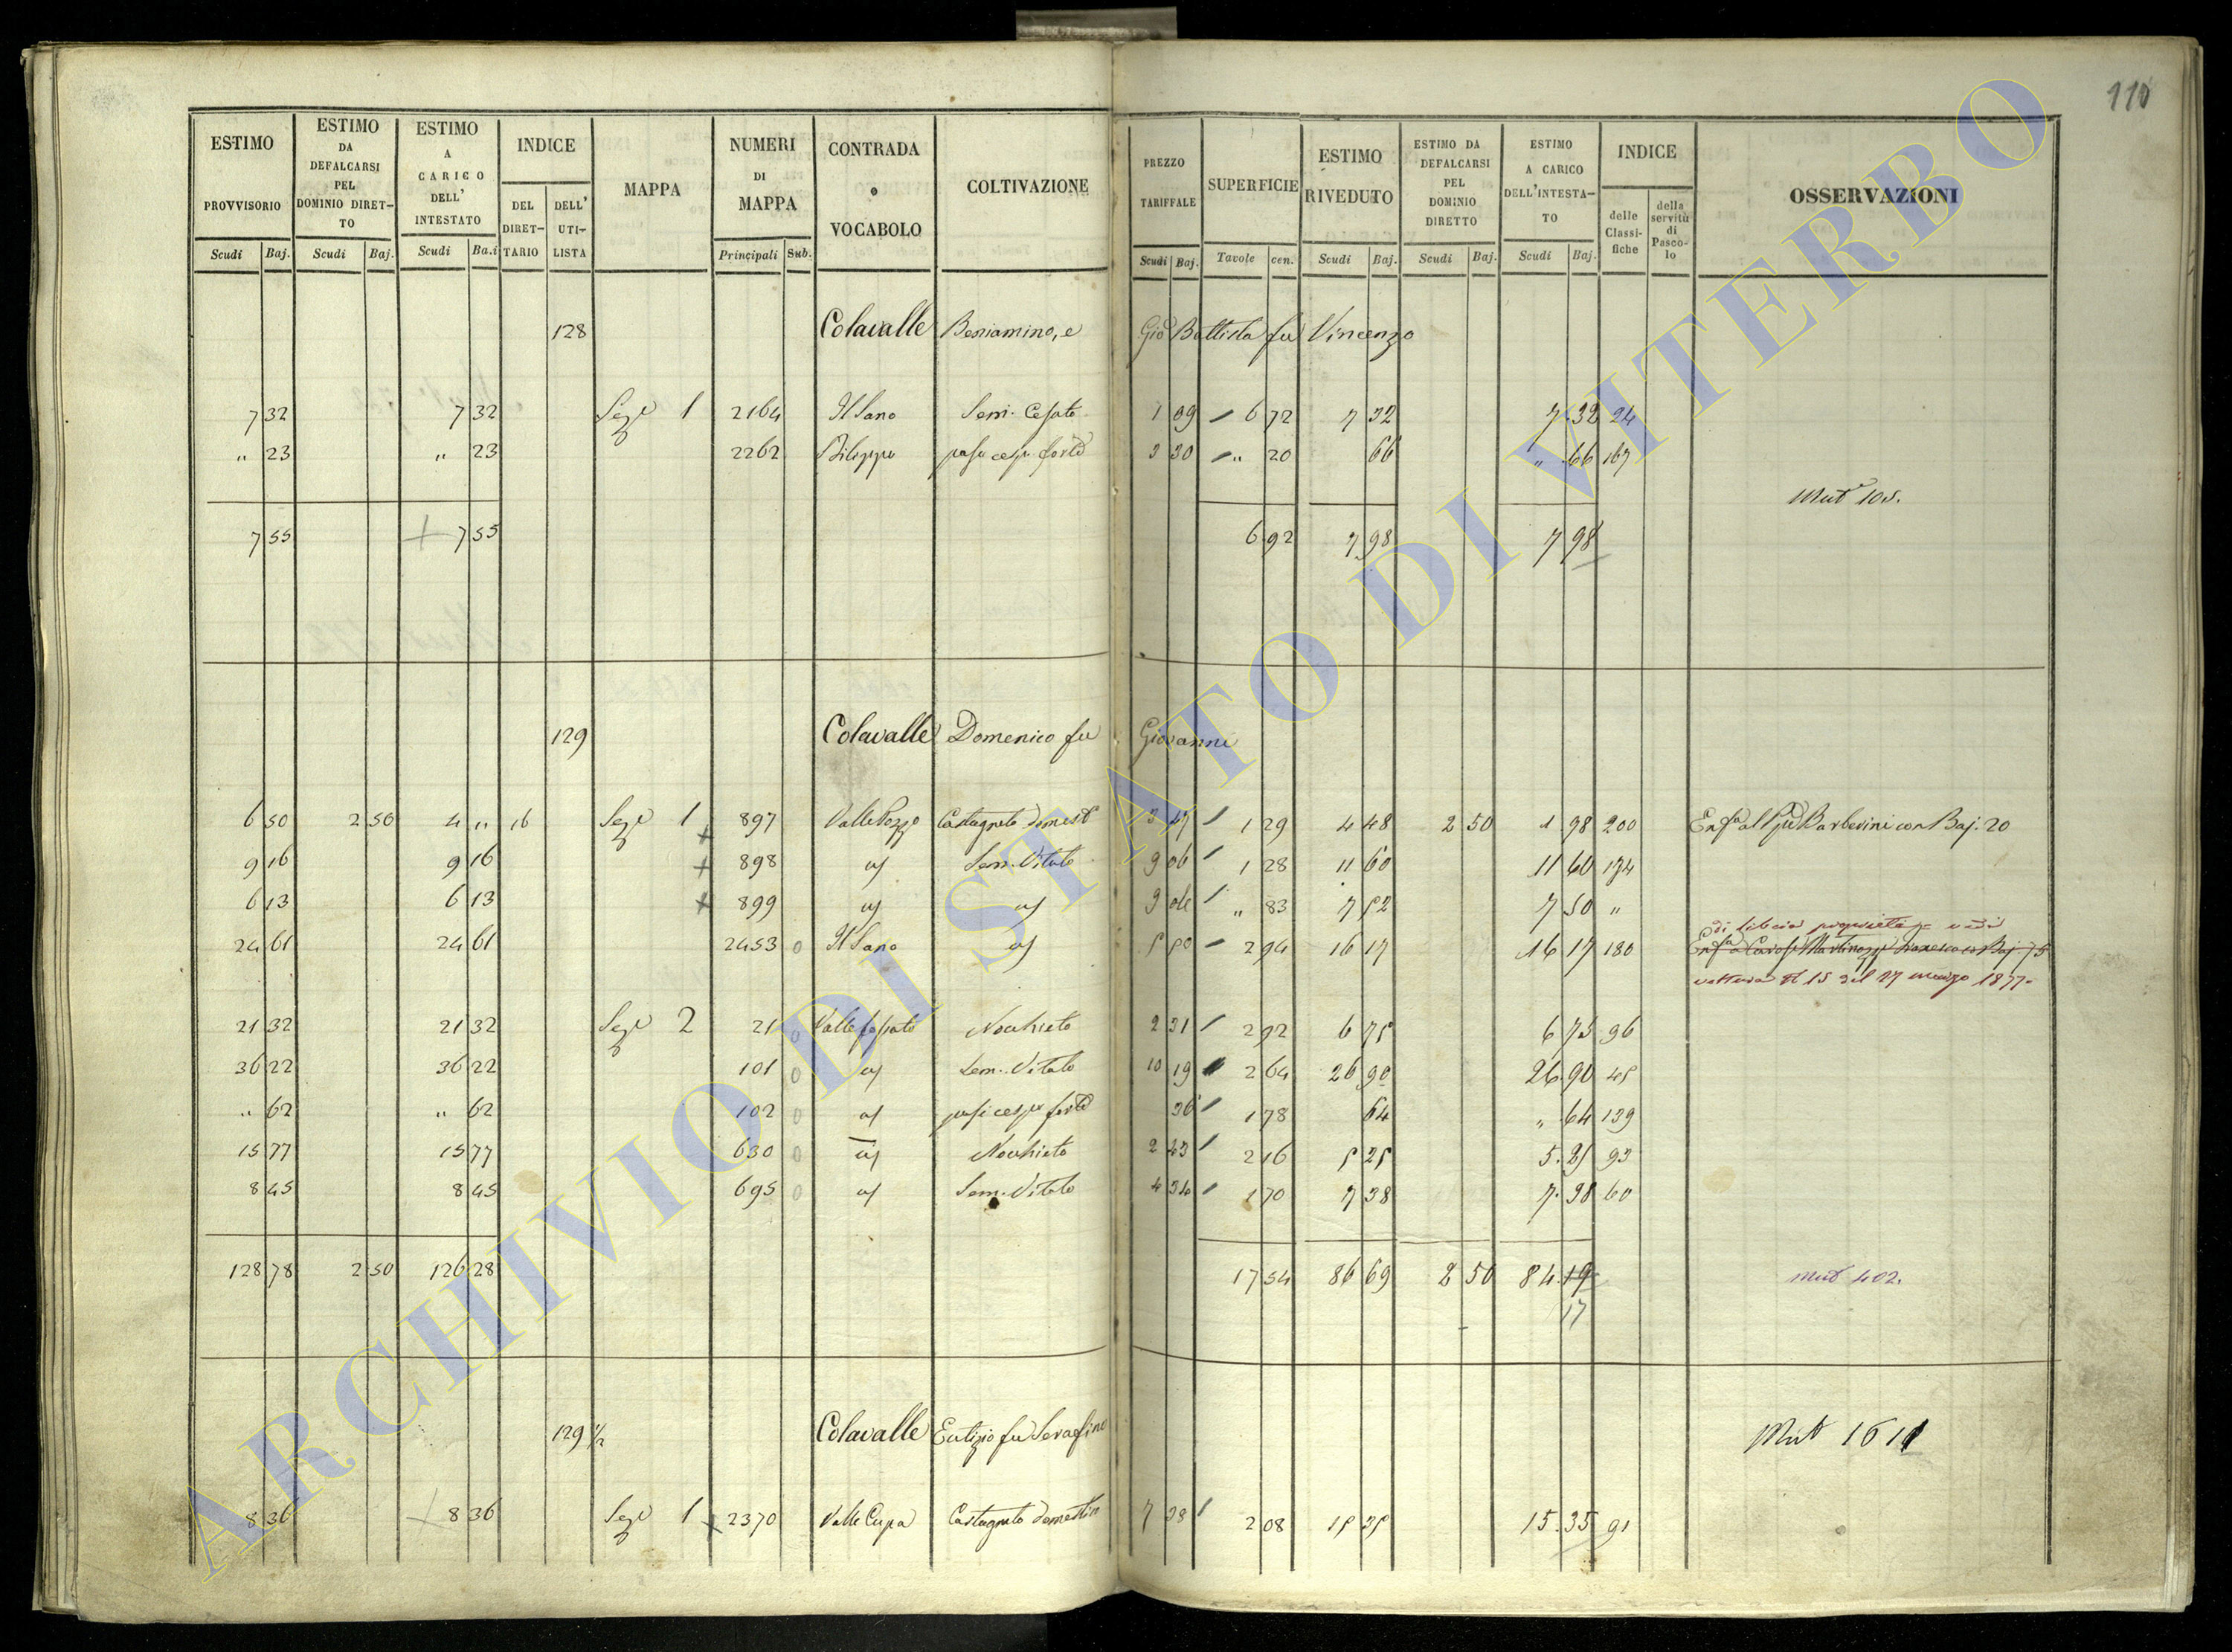 110
ESTIMO PROVVISORIO Scudi Baj.
ESTIMO DA DEFALCARSI PEL DOMINIO DIRETTO Scudi Baj.
ESTIMO A CARICO DELL' INTESTATO Scudi Ba.i
INDICE DEL DIRETTARIO DELL' UTILISTA
MAPPA
NUMERI DI MAPPA Principali Sub.
CONTRADA o VOCABOLO
COLTIVAZIONE
PREZZO TARIFFALE Scudi Baj.
SUPERFICIE Tavole cen.
ESTIMO RIVEDUTO Scudi Baj.
ESTIMO DA DEFALCARSI PEL DOMINIO DIRETTO Scudi Baj.
ESTIMO A CARICO DELL'INTESTATO Scudi Baj.
INDICE delle Classifiche della servitù di Pascolo
OSSERVAZIONI
128 Colavalle Beniamino, e Gio Battista fu Vincenzo
7 32 7 32 Sez.e 1 2164 Il Sano Sem. Cesato 1 09 6 72 7 32 7.32 24
" 23 " 23 2262 forte 3 30 " 20 66 " 66 167
Mut 105.
7 55 7 55 6 92 7 98 7 98
129 Colavalle Domenico fu Giovanni
6 50 2 50 4 " 16 Sez.e 1 897 Valle Pozzo Castagneto domest 3 47 1 29 4 48 2 50 1 98 200 Barberini con Baj. 20
9 16 9 16 898 Sem. Vitato 9 06 1 28 11 60 11 60 174
6 13 6 13 899 9 06 " 83 7 52 7 50 "
di libera proprietà vedi
24 61 24 61 2453 0 Il Sano 5 50 2 94 16 17 16 17 180 Baj. 75
voltura N 15 del 27 marzo 1877.
21 32 21 32 Sez.e 2 21 0 Valle fossato Nocchieto 2 31 2 92 6 75 6 75 96
36 22 36 22 101 0 Sem. Vitato 10 19 2 64 26 90 26.90 45
" 62 " 62 102 0 forte 36 1 78 64 " 64 139
15 77 15 77 630 0 Nocchieto 2 43 2 16 5 25 5.25 93
8 45 8 45 695 0 Sem. Vitato 4 34 1 70 7 38 7.38 60
128 78 2 50 126 28 17 54 86 69 2 50 84.19 mut 402.
17
129 1/2 Colavalle Eutizio fu Serafino Mut 1611
8 36 8 36 Sez.e 1 2370 Valle Cupa Castagneto domestico 7 38 2 08 15 35 15.35 91
ARCHIVIO DI STATO DI VITERBO